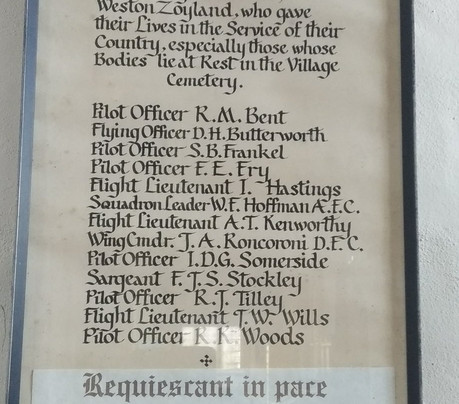 Weston Zoyland, who gave
their Lives in the Service of their
Country, especially those whose
Bodies lie at Rest in the Village
Cemetery.
Pilot Officer R.M. Bent
Flying Officer D.H. Butterworth
Pilot Officer S.B. Frankel
Pilot Officer F. E. Fry
Flight Lieutenant I. Hastings
Squadron Leader W.F. Hoffman A.F.C.
Flight Lieutenant A.T. Kenworthy
Wing Cmdr. J. A. Roncoroni D.F.C.
Pilot Officer I.D.G. Somerside
Sargeant F.J.S. Stockley
Pilot Officer R.J. Tilley
Flight Lieutenant T.W. Wills
Pilot Officer R.K. Woods
Requiescant in pace